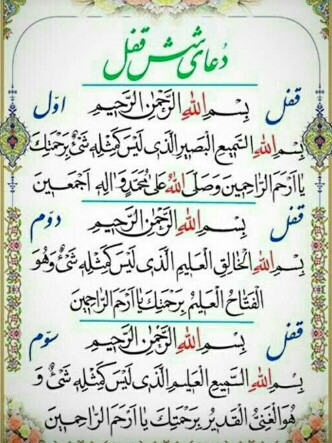 دُعای شش قفل
قفل بِسمِ اللهِ الرَّحمٰنِ الرَّحیمِ اوّل
بِسمِ اللهِ السَّمیعِ البَصیرِ الَّذی لَیسَ کَمِثلِهِ شَیْءٌ بِرَحمَتِكَ
یا اَرحَمَ الرّاحِمینَ وَصَلَی اللهُ عَلی مُحَمَّدٍ وَ الِهِ اَجمَعینَ
قفل بِسمِ اللهِ الرَّحمٰنِ الرَّحیمِ دوّم
بِسمِ اللهِ الخالِقِ العَلیمِ الَّذی لَیسَ کَمِثلِهِ شَیْءٌ وَهُوَ
الفَتّاحُ العَلیمُ بِرَحمَتِكَ یا اَرحَمَ الرّاحِمینَ
قفل بِسمِ اللهِ الرَّحمٰنِ الرَّحیمِ سوّم
بِسمِ اللهِ السَّمیعِ العَلیمِ الَّذی لَیسَ کَمِثلِهِ شَیْءٌ وَ
هُوَ الغَنِیُّ القَدیرُ بِرَحمَتِكَ یا اَرحَمَ الرّاحِمینَ